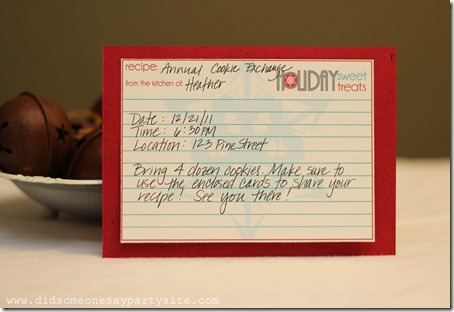 recipe: Annual Cookie Exchange
from the kitchen of Heather
HOLIDAY sweet treats
Date: 12/21/11
Time: 6:30 PM
Location: 123 Pine Street
Bring 4 dozen cookies. Make sure to
use the enclosed cards to share your
recipe! See you there!
www.didsomeonesaypartysite.com